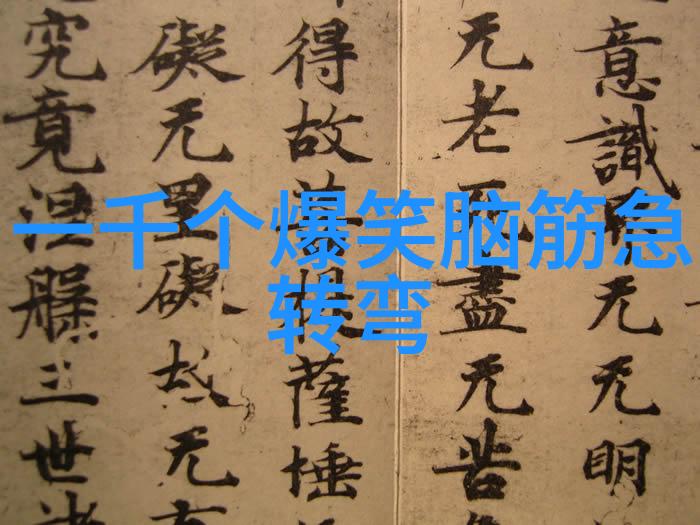 一千个爆笑脑筋急
转弯
意識界无无明
无老死盡无苦
得故菩提薩埵
礙无罣礙故无有
究竟涅槃三世諸